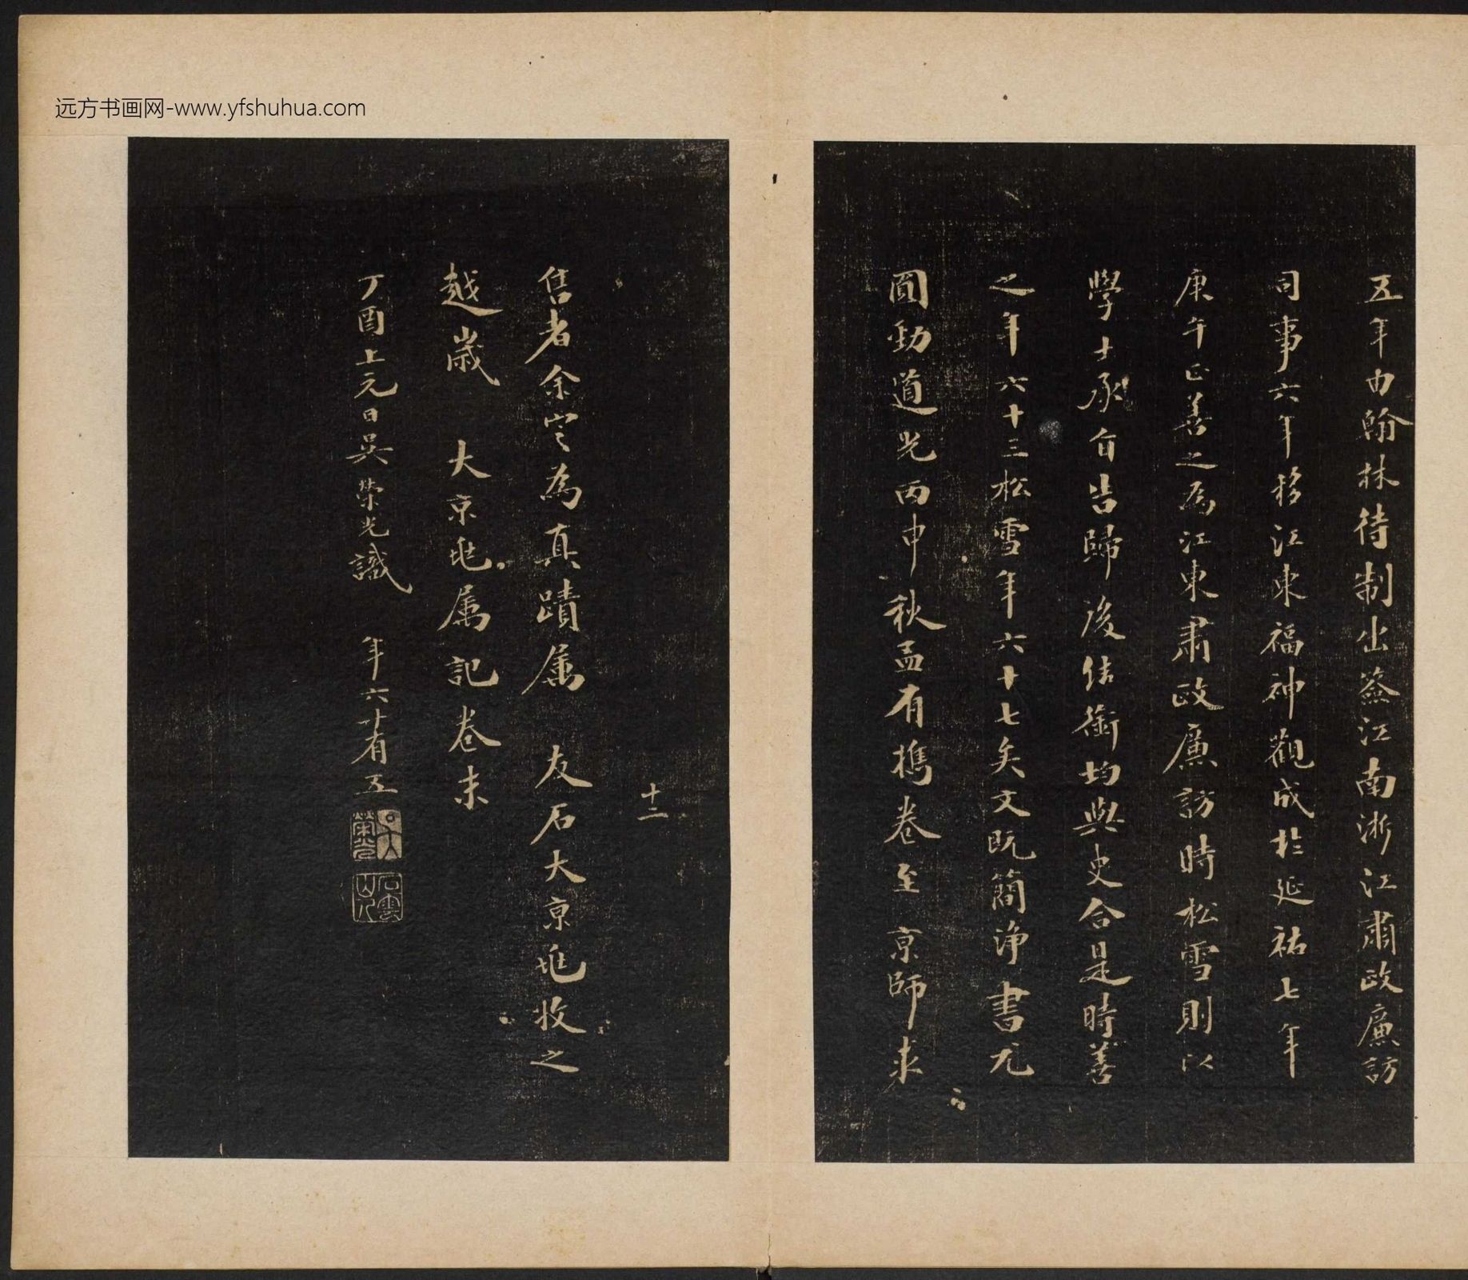 远方书画网-www.yfshuhua.com
五年由翰林待制出簽江南浙江肅政廉訪
司事六年移江東福神觀成於延祐七年
庚午正善之為江東肅政廉訪時松雪則以
學士承旨告歸後結銜均與史合是時善
之年六十三松雪年六十七矣文既簡淨書尤
圓勁道光丙申秋孟有攜卷至 京師求
十二
售者余定為真蹟屬 友石大京兆收之
越歲 大京兆属記卷末
丁酉上元日吳榮光識 年六十有五
吳榮光
石雲山人